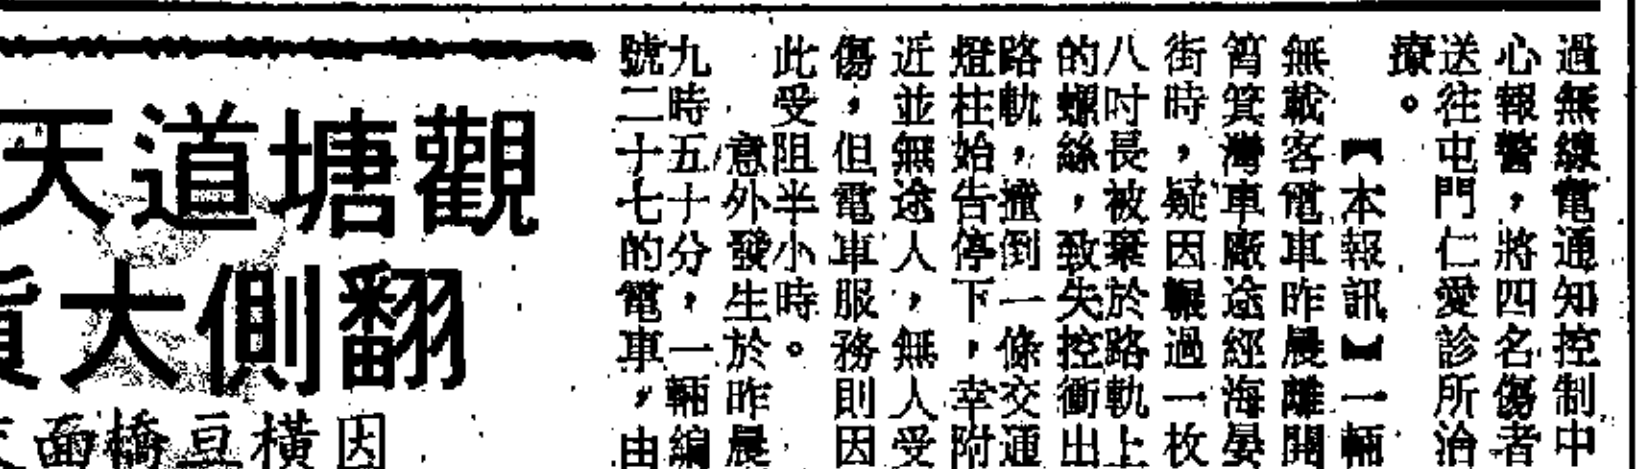 過無線電通知控制中
心報警，將四名傷者
送往屯門仁愛診所治
療。
【本報訊】一輛
無載客電車昨晨離開
筲箕灣車廠途經海晏
街時，疑因輾過一枚
八吋長被棄於路軌上
的螺絲，致失控衝出
路軌，撞倒一條交通
燈柱始告停下，幸附
近並無途人，無人受
傷，但電車服務則因
此受阻半小時。
意外發生於昨晨
九時五十分，一輛編
號二十七的電車，由
觀塘道天
翻側大
因橫豆橋面